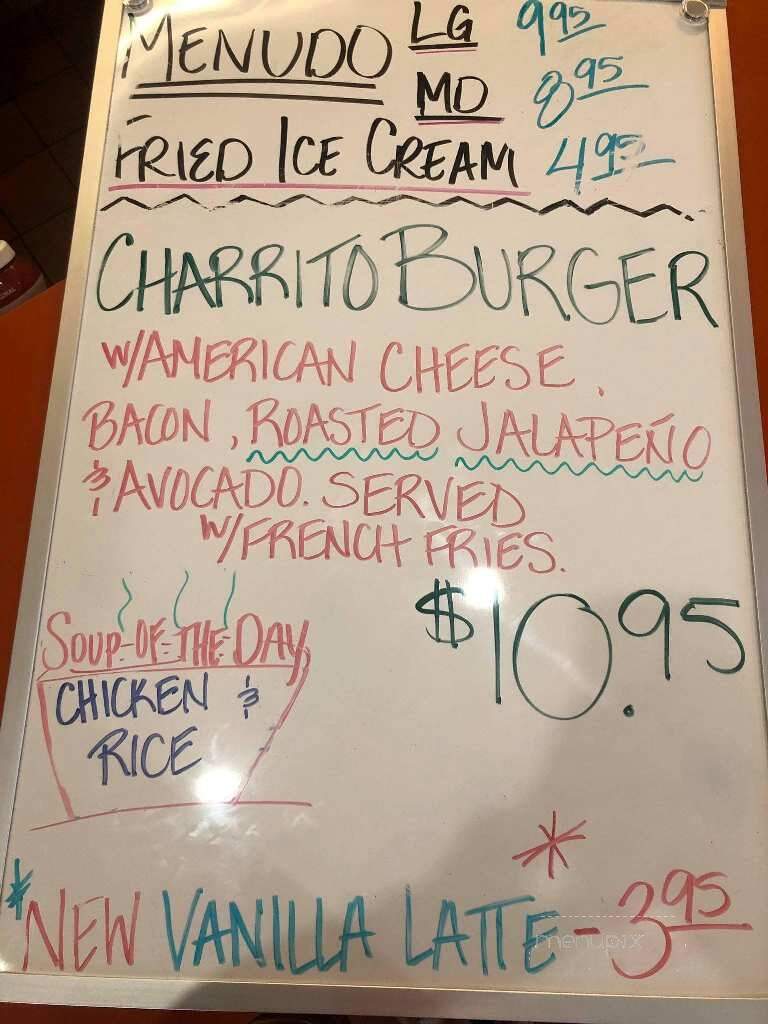 MENUDO LG 9.95
MD 8.95
FRIED ICE CREAM 4.95
CHARRITO BURGER
W/AMERICAN CHEESE.
BACON, ROASTED JALAPEÑO
& AVOCADO. SERVED
W/FRENCH FRIES.
$10.95
SOUP-OF-THE-DAY
CHICKEN &
RICE
*
*NEW VANILLA LATTE - 3.95
menupix